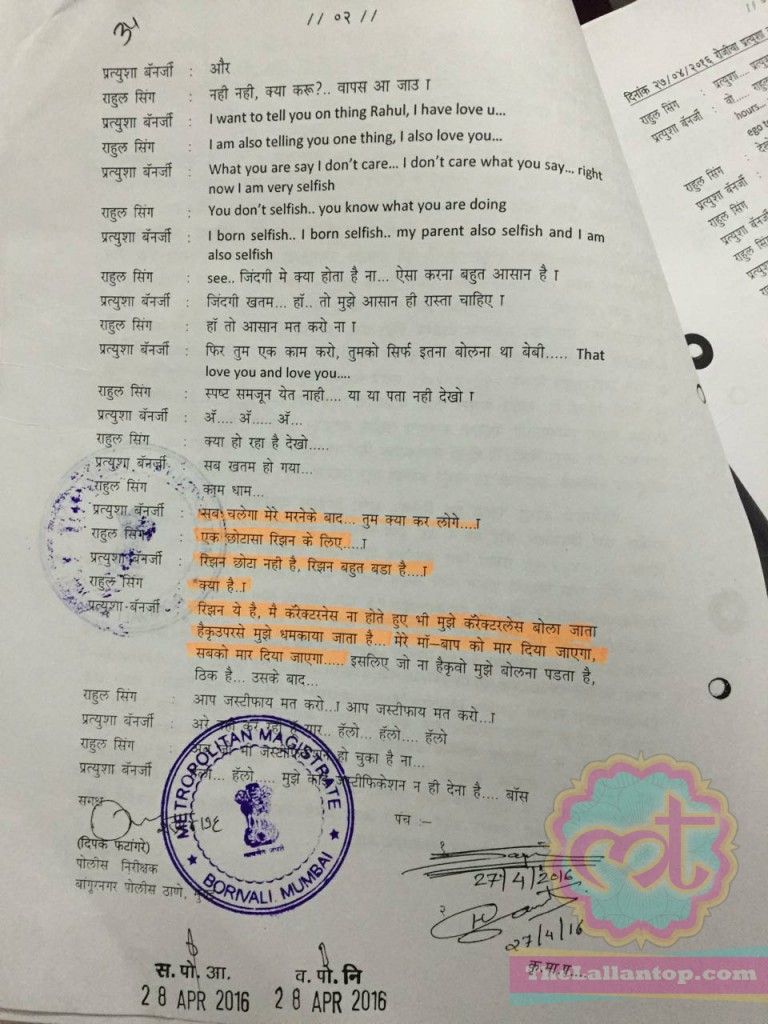 // ०२ //
प्रत्युशा बॅनर्जी : और
राहुल सिंग : नही नही, क्या करू?.. वापस आ जाउ ।
प्रत्युशा बॅनर्जी : I want to tell you on thing Rahul, I have love u...
राहुल सिंग : I am also telling you one thing, I also love you...
प्रत्युशा बॅनर्जी : What you are say I don't care... I don't care what you say... right
now I am very selfish
राहुल सिंग : You don't selfish.. you know what you are doing
प्रत्युशा बॅनर्जी : I born selfish.. I born selfish.. my parent also selfish and I am
also selfish
राहुल सिंग : see.. जिंदगी मे क्या होता है ना... ऐसा करना बहुत आसान है ।
प्रत्युशा बॅनर्जी : जिंदगी खतम... हॉ.. तो मुझे आसान ही रास्ता चाहिए ।
राहुल सिंग : हॉ तो आसान मत करो ना ।
प्रत्युशा बॅनर्जी : फिर तुम एक काम करो, तुमको सिर्फ इतना बोलना था बेबी..... That
love you and love you....
राहुल सिंग : स्पष्ट समजून येत नाही.... या या पता नही देखो ।
प्रत्युशा बॅनर्जी : ॲ.... ॲ..... ॲ...
राहुल सिंग : क्या हो रहा है देखो.....
प्रत्युशा बॅनर्जी : सब खतम हो गया...
राहुल सिंग : काम धाम...
प्रत्युशा बॅनर्जी : सब चलेगा मेरे मरनेके बाद... तुम क्या कर लोगे....।
राहुल सिंग : एक छोटासा रिझन के लिए.....।
प्रत्युशा बॅनर्जी : रिझन छोटा नही है, रिझन बहुत बडा है....।
राहुल सिंग : क्या है..।
प्रत्युशा बॅनर्जी : रिझन ये है, मै कॅरेक्टरनेस ना होते हुए भी मुझे कॅरेक्टरलेस बोला जाता
हैकृउपरसे मुझे धमकाया जाता है... मेरे मॉ-बाप को मार दिया जाएगा,
सबको मार दिया जाएगा..... इसलिए जो ना हैकृवो मुझे बोलना पडता है,
ठिक है... उसके बाद...
राहुल सिंग : आप जस्टीफाय मत करो...। आप जस्टीफाय मत करो...।
प्रत्युशा बॅनर्जी : अरे नही कर रही यार.. हॅलो... हॅलो.... हॅलो
राहुल सिंग : जस्टीफिकेशन हो चुका है ना...
प्रत्युशा बॅनर्जी : हॅलो... हॅलो..... मुझे कोई जस्टीफिकेशन न ही देना है.... बॉस
समक्ष
पंच :-
(दिपक फटांगरे)
पोलीस निरीक्षक
बांगूरनगर पोलीस ठाणे, मुंबई
METROPOLITAN MAGISTRATE
BORIVALI, MUMBAI
सत्यमेव जयते
१
27/4/2016
२
27/4/16
स. पो. आ. व. पो. नि
28 APR 2016 28 APR 2016
// ०
दिनांक २७/०४/२०१६ रोजीचा प्रत्युशा
राहुल सिंग : प्रत्युशा.... प्रत्यु
प्रत्युशा बॅनर्जी : वो.....
hours...
ego to
राहुल सिंग : देखो
प्रत्युशा बॅनर्जी :
राहुल सिंग
प्रत्युशा बॅनर्जी
राहुल सिंग
प्रत्युशा बॅनर्जी
mt
TheLallantop.com